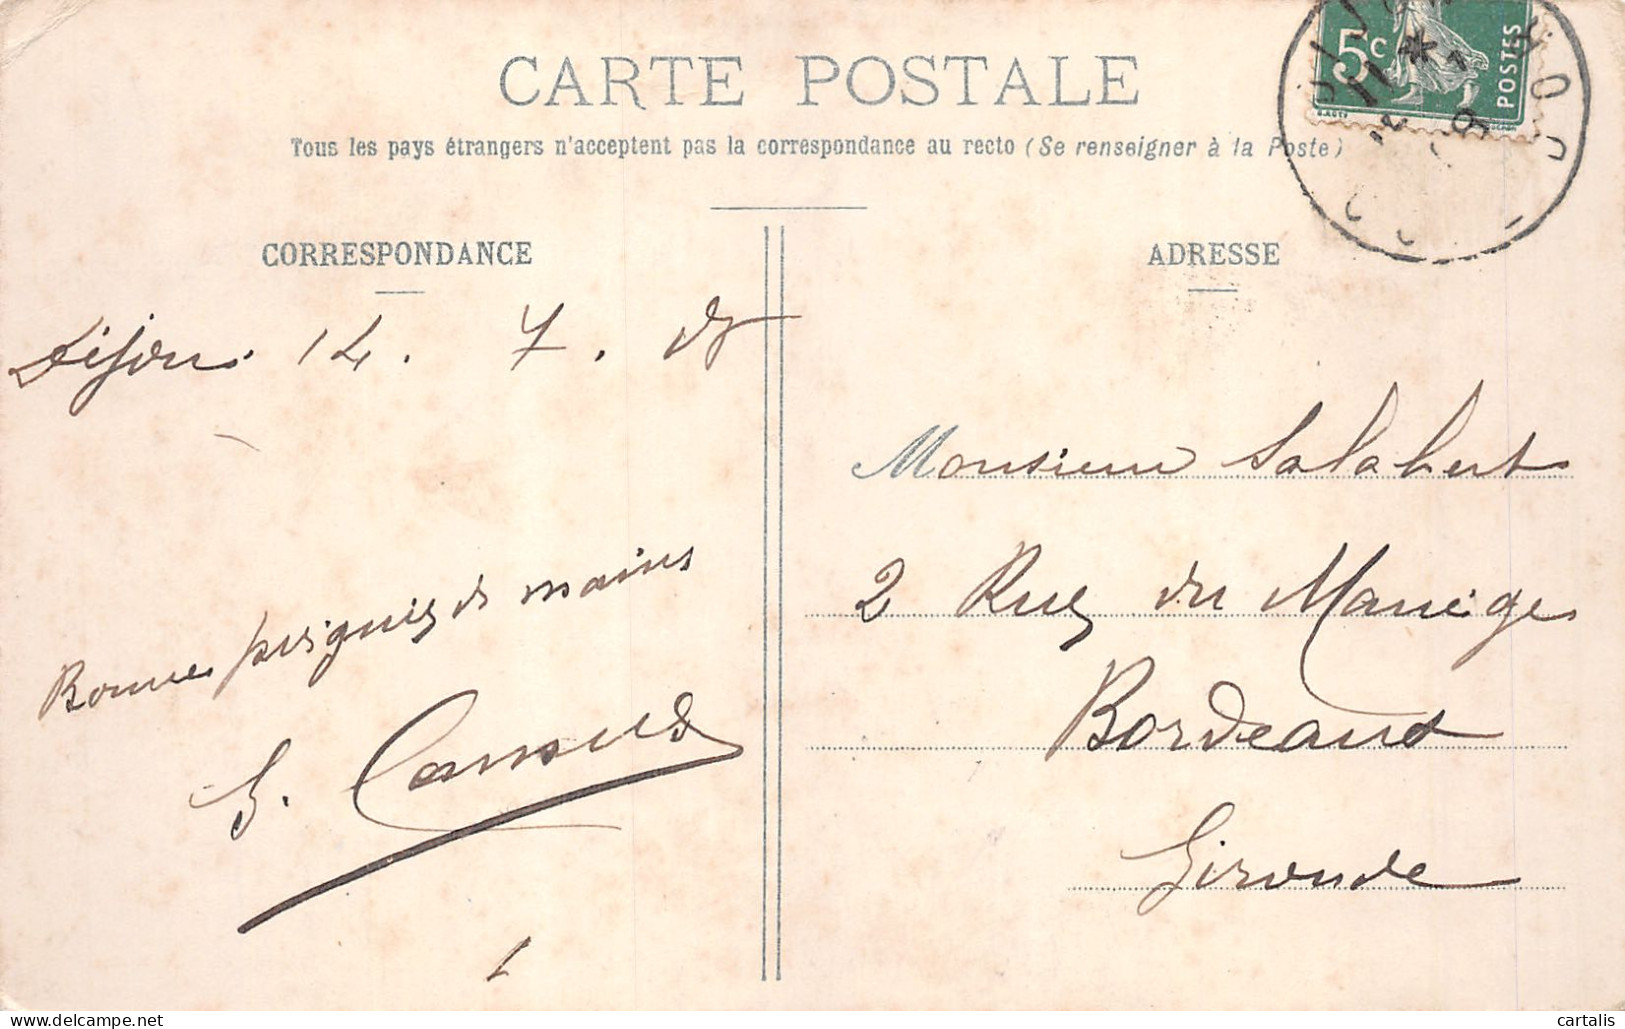 CARTE POSTALE
Tous les pays étrangers n'acceptent pas la correspondance au recto (Se renseigner à la Poste)
5c
POSTES
CORRESPONDANCE
ADRESSE
Dijon 14. 7.
Monsieur Salabert
2 Rue du Manège
Bordeaux
Gironde
Bonnes poignées de mains
cartalis